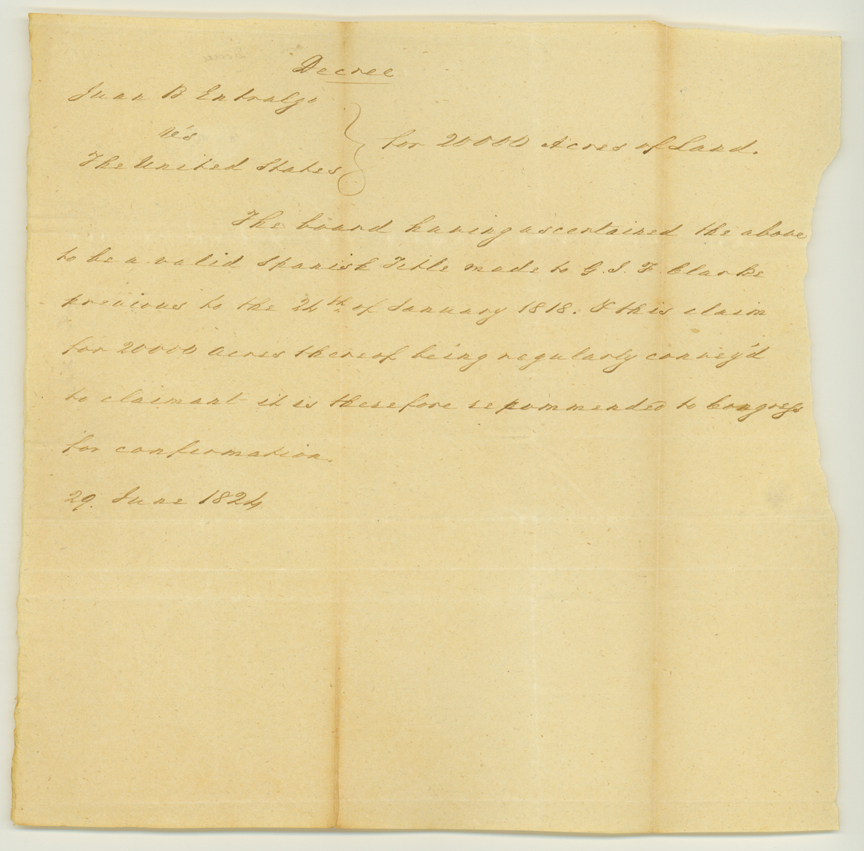 Decree
Juan B Entralgo
vs
The United States
for 20000 Acres of Land.
The board having ascertained the above
to be a valid Spanish Title made to G. J. F. Clarke
previous to the 24th of January 1818. & this claim
for 20000 acres thereof being regularly convey'd
to claimant it is therefore recommended to Congress
for confirmation.
29. June 1824